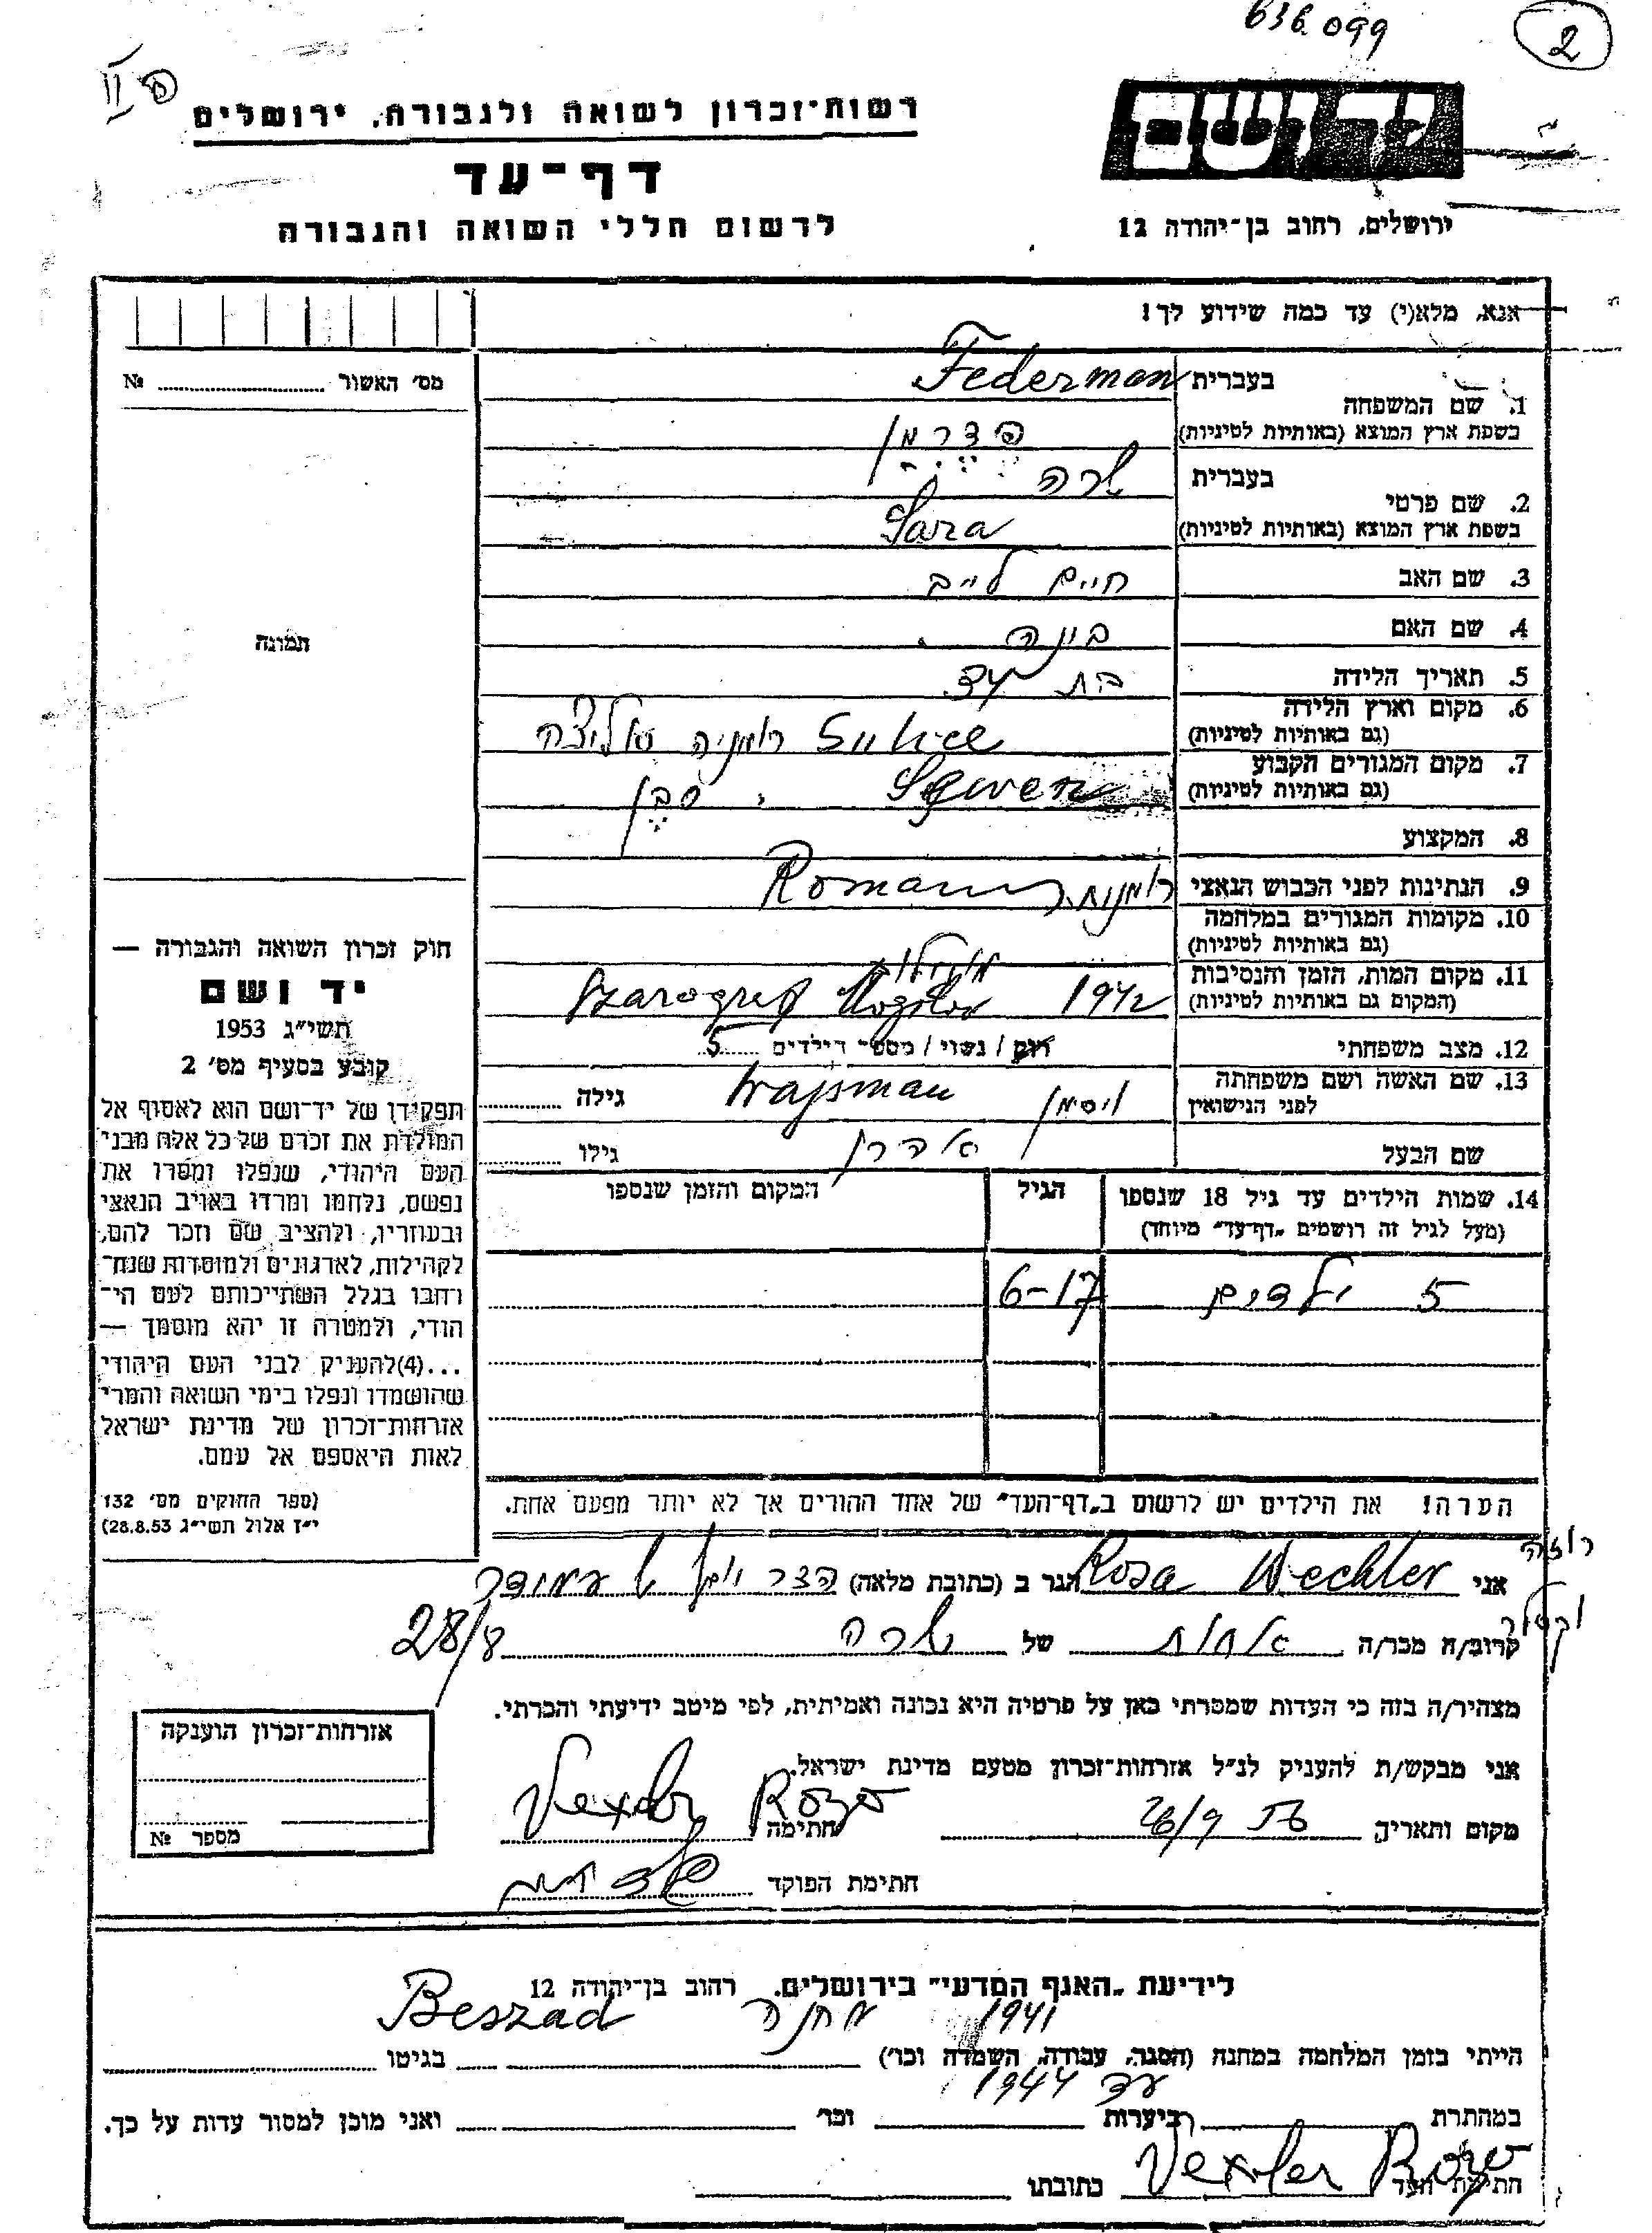 636.099
2
II פ
רשות־זכרון לשואה ולגבורה, ירושלים
יד ושם
דף־עד
לרשום חללי השואה והגבורה
ירושלים, רחוב בן־יהודה 12
אנא, מלא(י) עד כמה שידוע לך!
מס׳ האשור № 
1. שם המשפחה
בעברית Federman
בשפת ארץ המוצא (באותיות לטיניות) פדרמן
2. שם פרטי
בעברית שרה
בשפת ארץ המוצא (באותיות לטיניות) Sara
3. שם האב חיים לייב
4. שם האם בינה
תמונה
5. תאריך הלידה בת
6. מקום וארץ הלידה
(גם באותיות לטיניות) רומניה
7. מקום המגורים הקבוע
(גם באותיות לטיניות)
8. המקצוע
9. הנתינות לפני הכבוש הנאצי רומנית
10. מקומות המגורים במלחמה
(גם באותיות לטיניות)
11. מקום המות, הזמן והנסיבות
(המקום גם באותיות לטיניות) 1942 Mogilov מוגילוב
12. מצב משפחתי רוק / נשוי / מספר הילדים 5
13. שם האשה ושם משפחתה
לפני הנישואין ויסמן Wajsman גילה
שם הבעל אהרן גילו
14. שמות הילדים עד גיל 18 שנספו
(מעל לגיל זה רושמים „דף־עד״ מיוחד)
הגיל
המקום והזמן שנספו
5 ילדים 6-17
הערה! את הילדים יש לרשום ב„דף־העד״ של אחד ההורים אך לא יותר מפעם אחת.
חוק זכרון השואה והגבורה —
יד ושם
תשי״ג 1953
קובע בסעיף מס׳ 2
תפקידו של יד־ושם הוא לאסוף אל
המולדת את זכרם של כל אלה מבני
העם היהודי, שנפלו ומסרו את
נפשם, נלחמו ומרדו באויב הנאצי
ובעוזריו, ולהציב שם וזכר להם,
לקהילות, לארגונים ולמוסדות שנח־
רבו בגלל השתייכותם לעם הי־
הודי, ולמטרה זו יהא מוסמך —
...(4)להעניק לבני העם היהודי
שהושמדו ונפלו בימי השואה והמרי
אזרחות־זכרון של מדינת ישראל
לאות היאספם אל עמם.
(ספר החוקים מס׳ 132
י״ז אלול תשי״ג 28.8.53)
רוזה
אני Rosa Wechler הגר ב (כתובת מלאה)
וקסלר
קרוב/ה מכר/ה אחות של שרה 28/8
מצהיר/ה בזה כי העדות שמסרתי כאן על פרטיה היא נכונה ואמיתית, לפי מיטב ידיעתי והכרתי.
אני מבקש/ת להעניק לנ״ל אזרחות־זכרון מטעם מדינת ישראל.
מקום ותאריך 26/9 חתימה Vexler Roza
חתימת הפוקד
אזרחות־זכרון הוענקה
מספר №
לידיעת „האגף המדעי״ בירושלים. רחוב בן־יהודה 12
1941 מחנה Beszad
הייתי בזמן המלחמה במחנה (הסגר, עבודה, השמדה וכו׳) בגיטו
עד 1944
במחתרת ביערות וכו׳ ואני מוכן למסור עדות על כך.
חתימת העד Vexler Roza כתובתו